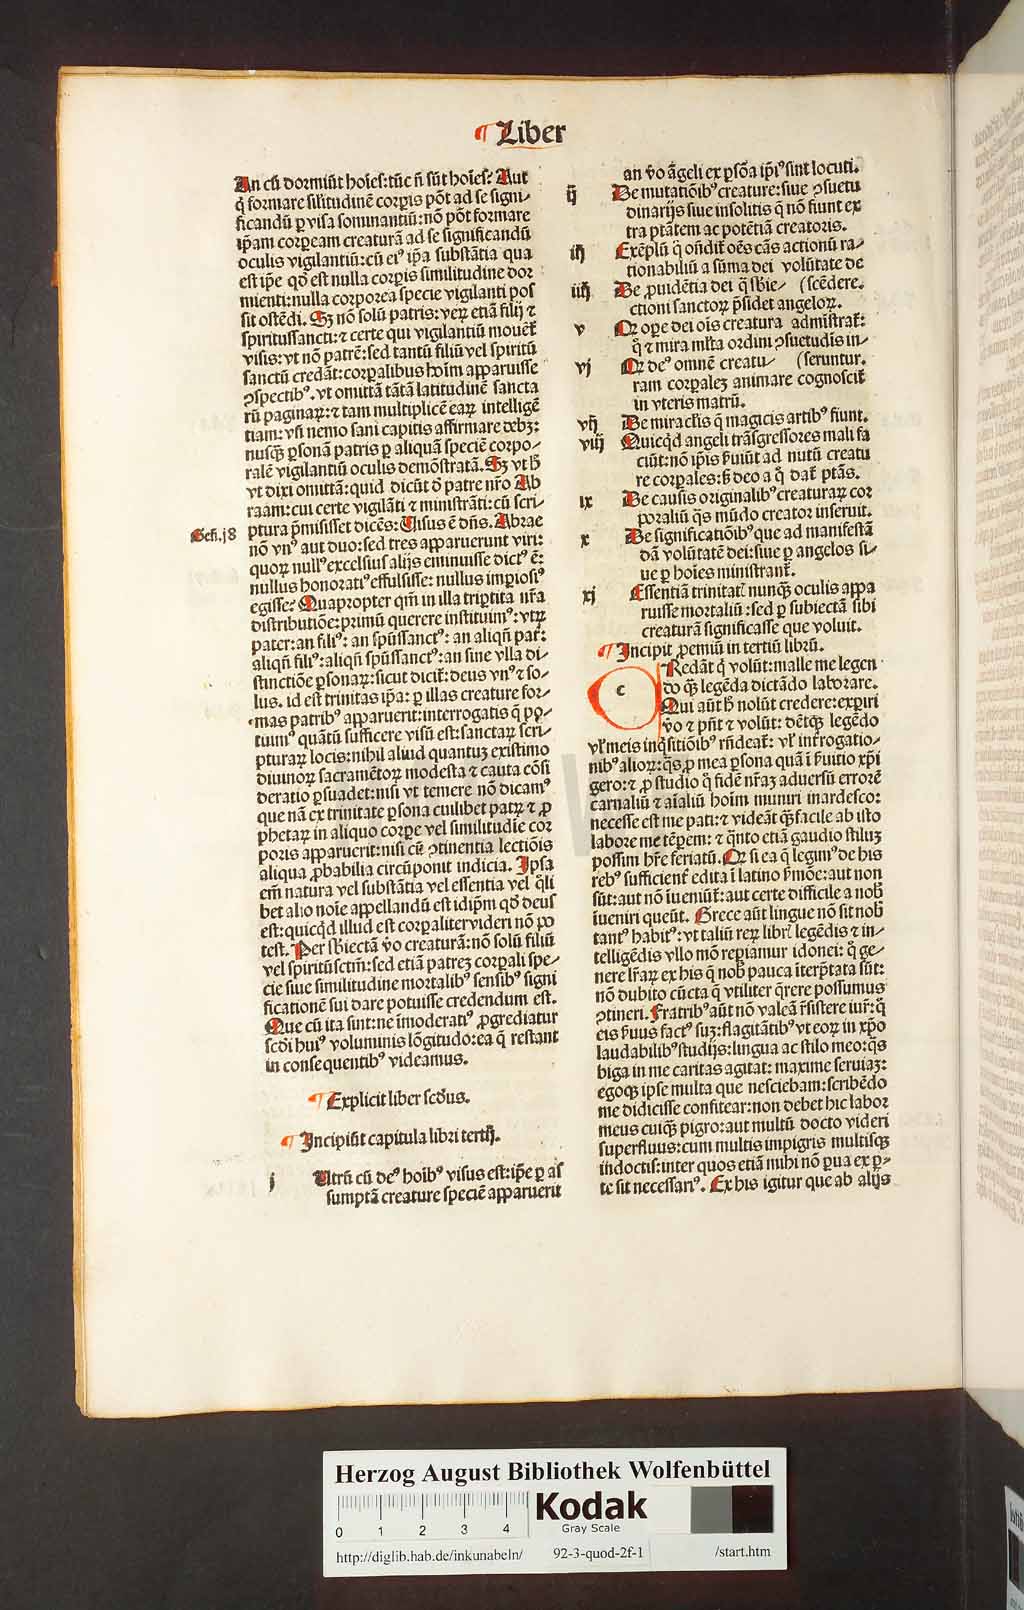 ¶ Liber
An cū dormiūt hoīes: tūc ñ sūt hoīes? Aut
q̇ formare silitudinē corꝑis pōt ad se signi⸗
ficandū ꝑ visa somnantiū: nō pōt formare
ip̄am corꝑeam creaturā ad se significandū
oculis vigilantiū: cū eiꝰ ip̄a substātia qua
est ip̄e qḋ est nulla corꝑis similitudine dor
mienti: nulla corporea specie vigilanti pos
sit ostēdi. Sꝫ nō solū patris: veꝝ etiā filij ⁊
spiritussancti: ⁊ certe qui vigilantiū mouet᷑
visis: vt nō patrē: sed tantū filiū vel spiritū
sanctū credāt: corꝑalibus hoīm apparuisse
ꝯspectibꝰ. vt omittā tātā latitudinē sancta
rū paginaꝝ: ⁊ tam multiplicē eaꝝ intelligē
tiam: vñ nemo sani capitis affirmare debꝫ:
nusqꝫ ꝑsonā patris ꝑ aliquā speciē corpo⸗
ralē vigilantiū oculis demōstratā. Sꝫ vt h̄
vt dixi omittā: quid dicūt ď patre nr̄o Ab
raam: cui certe vigilāti ⁊ ministrāti: cū scri⸗
Geñ. j8
ptura p̄misisset dicēs: Uisus ē dn̄s. Abrae
nō vnꝰ aut duo: sed tres apparuerunt viri:
quoꝝ nullꝰ excelsius alijs eminuisse dictꝰ ē:
nullus honoratiꝰ effulsisse: nullus imꝑiosiꝰ
egisse? Quapropter qm̄ in illa triꝑtita nr̄a
distributiōe: primū querere instituimꝰ: vtꝝ
pater: an filiꝰ: an spūssanctꝰ: an aliqñ pat᷑:
aliqñ filiꝰ: aliqñ spūssanctꝰ: an sine vlla di⸗
stinctiōe ꝑsonaꝝ: sicut dicit᷑: deus vnꝰ ⁊ so⸗
lus. id est trinitas ip̄a: ꝑ illas creature for⸗
mas patribꝰ apparuerit: interrogatis q̄ po⸗
tuimꝰ quātū sufficere visū est: sanctaꝝ scri⸗
pturaꝝ locis: nihil aliud quantuꝫ existimo
diuinoꝝ sacramētoꝝ modesta ⁊ cauta cōsi
deratio ꝑsuadet: nisi vt temere nō dicamꝰ
que nā ex trinitate ꝑsona cuilibet patꝝ ⁊ ꝓ
phetaꝝ in aliquo corꝑe vel similitudīe cor
poris apparuerit: nisi cū ꝯtinentia lectiōis
aliqua ꝓbabilia circūponit indicia. Ipsa
em̄ natura vel substātia vel essentia vel q̄li
bet alio noīe appellandū est idip̄m qḋ deus
est: quicqd illud est corꝑaliter videri nō po
test. Per sbiectā v̊o creaturā: nō solū filiū
vel spiritūsctm̄: sed etiā patreꝫ corꝑali spe⸗
cie siue similitudine mortalibꝰ sensibꝰ signi
ficationē sui dare potuisse credendum est.
Que cū ita sint: ne īmoderatiꝰ ꝓgrediatur
scdi huiꝰ voluminis lōgitudo: ea q̄ restant
in consequentibꝰ videamus.
¶ Explicit liber scďus.
¶ Incipiūt capitula libri tertij.
j Utrū cū deꝰ hoībꝰ visus est: ip̄e ꝑ as
sumptā creature speciē apparuerit
an v̊o āgeli ex ꝑsōa ip̄iꝰ sint locuti.
ij De mutatiōibꝰ creature: siue ꝯsuetu
dinarijs siue insolitis q̄ nō fiunt ex
tra ptātem ac potētiā creatoris.
iij Exēplū q̊ oñdit᷑ oēs cās actionū ra⸗
tionabiliū a sūma dei volūtate de
iiij De ꝓuidētia dei q̄ sbie⸗ (scēdere.
ctioni sanctoꝝ p̄sidet angeloꝝ.
v Qꝛ oꝑe dei oīs creatura admistrat᷑:
q̊ ⁊ mira ml̄ta ordini ꝯsuetudis in⸗
vj Qꝛ deꝰ omnē creatu⸗ (seruntur.
ram corꝑaleꝫ animare cognoscit᷑
in vteris matrū.
vij De miracl̄is q̄ magicis artibꝰ fiunt.
viij Quicqd angeli trāsgressores mali fa
ciūt: nō ip̄is ẜuiūt ad nutū creatu
re corpales: ß deo a q̊ dat᷑ ptās.
ix De causis originalibꝰ creaturaꝝ cor
poraliū q̄s mūdo creator inseruit.
x De significatiōibꝰ que ad manifestā
dā volūtatē dei: siue ꝑ angelos si⸗
ue ꝑ hoīes ministrant᷑.
xj Essentiā trinitatꝭ nunqꝫ oculis appa
ruisse mortaliū: sed ꝑ subiectā sibi
creaturā significasse que voluit.
¶ Incipit ꝓemiū in tertiū librū.
c Redāt q̇ volūt: malle me legen
do qꝫ legēda dictādo laborare.
Qui aūt h̄ nolūt credere: exꝑiri
v̊o ⁊ pn̄t ⁊ volūt: dētqꝫ legēdo
vl̄ meis inq̇sitiōibꝰ rn̄deat᷑: vl̄ int̓rogatio⸗
nibꝰ alioꝝ: q̄s ꝓ mea ꝑsona quā ī ẜuitio xp̄i
gero: ⁊ ꝓ studio q̊ fidē nr̄aꝫ aduersū errorē
carnaliū ⁊ aīaliū hoīm muniri inardesco:
necesse est me pati: ⁊ videāt qꝫ facile ab isto
labore me tēꝑem: ⁊ q̄nto etiā gaudio stiluꝫ
possim hr̄e feriatū. Qꝛ si ea q̄ legimꝰ de his
rebꝰ sufficient᷑ edita ī latino ẜmōe: aut non
sūt: aut nō īueniūt᷑: aut certe difficile a nob̄
īueniri queūt. Grece aūt lingue nō sit nob̄
tantꝰ habitꝰ: vt taliū reꝝ libꝭ legēdis ⁊ in⸗
telligēdis vllo mō reꝑiamur idonei: q̊ ge⸗
nere lr̄aꝝ ex his q̄ nob̄ pauca īterp̄tata sūt:
nō dubito cūcta q̄ vtiliter q̄rere possumus
ꝯtineri. Fratribꝰ aūt nō valeā r̄sistere iur̄: q̊
eis ẜuus factꝰ suꝫ: flagitātibꝰ vt eoꝝ in xp̄o
laudabilibꝰ studijs: lingua ac stilo meo: q̄s
biga in me caritas agitat: maxime seruiaꝫ:
egoqꝫ ipse multa que nesciebam: scribēdo
me didicisse confitear: non debet hic labor
meus cuiqꝫ pigro: aut multū docto videri
superfluus: cum multis impigris multisqꝫ
indoctis: inter quos etiā mihi nō ꝑua ex ꝑ⸗
te sit necessariꝰ. Ex his igitur que ab alijs
Herzog August Bibliothek Wolfenbüttel
0 1 2 3 4
Kodak
Gray Scale
http://diglib.hab.de/inkunabeln/ 92-3-quod-2f-1 /start.htm